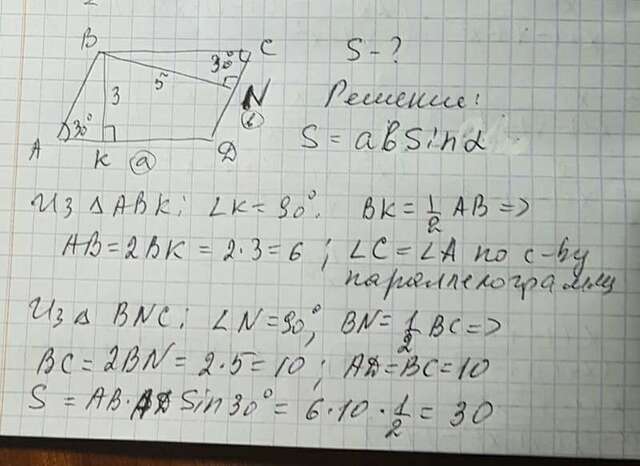 B 30° C S - ?
5
3 N Решение:
в
A 30° K а D S = aвSinα
Из △ABK: ∠K=90°. BK = 1/2 AB =>
AB = 2BK = 2·3 = 6 ; ∠C = ∠A по с-ву
параллелограмма
Из △ BNC: ∠N=90°, BN = 1/2 BC =>
BC = 2BN = 2·5 = 10 ; AD = BC = 10
S = AB·AD Sin30° = 6·10·1/2 = 30